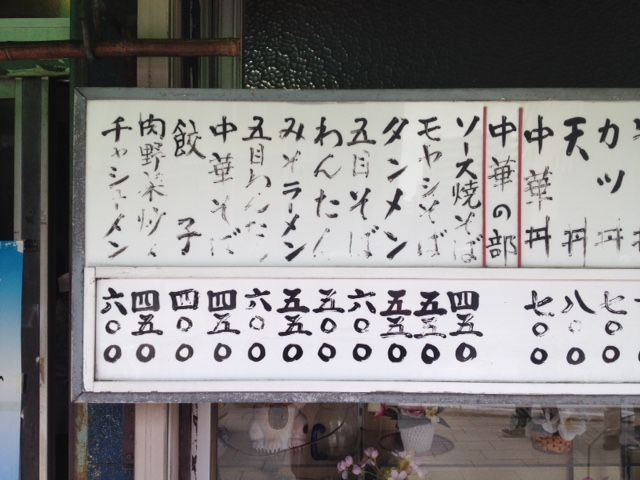 カツ丼
天丼
中華丼
中華の部
ソース焼そば
モヤシそば
タンメン
五目そば
わんたん
みそラーメン
五目わんたん
中華そば
餃子
肉野菜炒め
チャシューメン
七〇〇
八〇〇
七〇〇
四五〇
五三〇
五五〇
六〇〇
五〇〇
五五〇
六〇〇
四五〇
四〇〇
四五〇
六〇〇